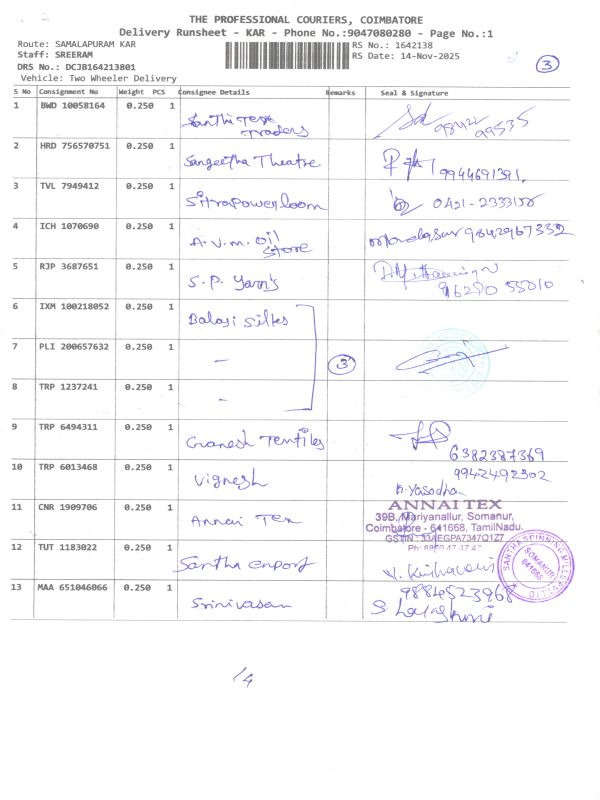 THE PROFESSIONAL COURIERS, COIMBATORE
Delivery Runsheet - KAR - Phone No.:9047080280 - Page No.:1
Route: SAMALAPURAM KAR
RS No.: 1642138
Staff: SREERAM
RS Date: 14-Nov-2025
3
DRS No.: DCJB164213801
Vehicle: Two Wheeler Delivery
S No Consignment No Weight PCS Consignee Details Remarks Seal & Signature
1 BWD 10058164 0.250 1 Santhi Tex Traders 98422 99535
2 HRD 756570751 0.250 1 Sangeetha Theatre 9944691391
3 TVL 7949412 0.250 1 Sitrapowerloom 0421-2333158
4 ICH 1070690 0.250 1 A.V.M. Oil Store 9842967332
5 RJP 3687651 0.250 1 S.P. Yarn's 96290 55010
6 IXM 100218052 0.250 1 Balaji Silks
7 PLI 200657632 0.250 1 - 3
8 TRP 1237241 0.250 1 -
9 TRP 6494311 0.250 1 Ganesh Textiles 6382387369
10 TRP 6013468 0.250 1 Vignesh 9942492302
K. Yasodha
11 CNR 1909706 0.250 1 Annai Tex ANNAI TEX
39B, Mariyanallur, Somanur,
Coimbatore - 641668, TamilNadu.
GSTIN : 33AEGPA7347Q1Z7
12 TUT 1183022 0.250 1 Santha Export
SANTHA SPINNING MILLS
SOMANUR
641668
13 MAA 651046066 0.250 1 Srinivasan 9884523968
/4